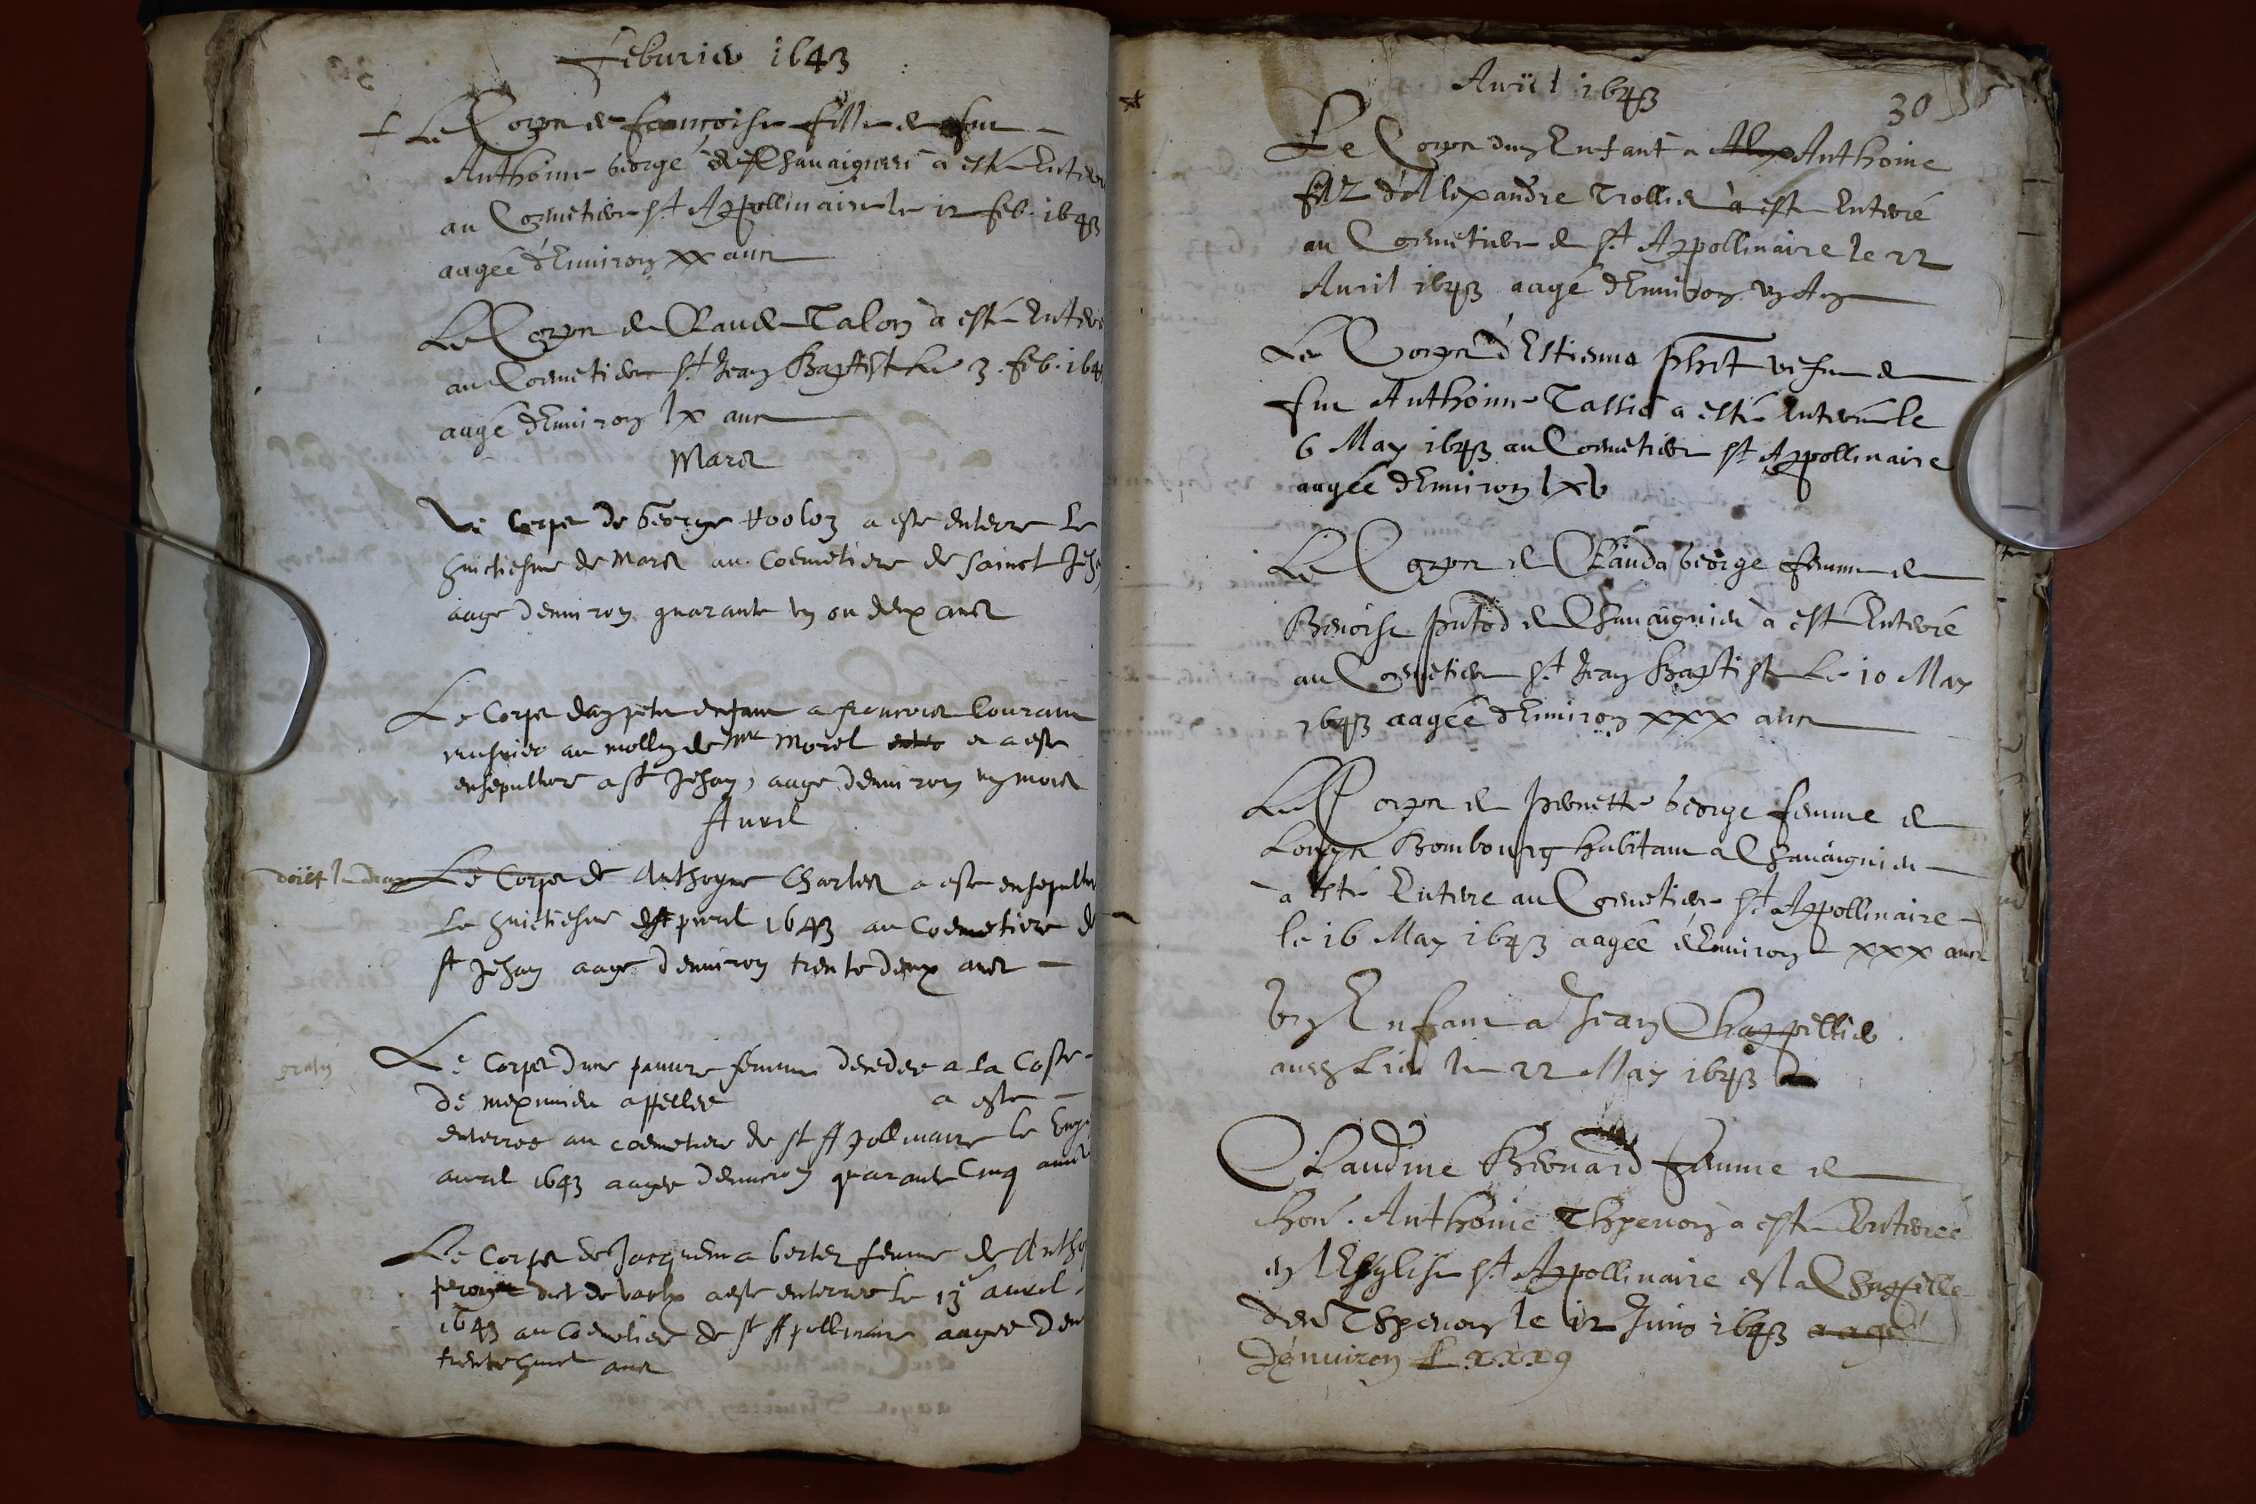 Feburier 1643
Le Corps de francoise fille de feu
Anthoine George de Chavaignieu a esté Enterré
au Coemetiere st Appollinaire le 12 feb. 1643
aagée d'Enuiron xx ans
Le Corps de Claude Talon a esté Enterré
au Coemetiere st Jean Baptiste le 3. feb. 164
aagé d'Enuiron lx ans
Mars
Le Corps de George a este enterre le
huictiesme de Mars au Coemetiere de sainct Jeh
aage denuiron quarante vn ou deux ans
Le Corps dun petit enfant a francois Couram
musnier au mollin de Mr Morel et a este
ensepulture a st Jehan, aage denuiron un mois
Auril
doibt le drap
Le Corps de Anthoyne Charles a este ensepultu
Le huictiesme dapuril 1643 au Coemetiere de
st Jehan aage denuiron trente deux ans
gratis
Le Corps dune pauure femme decedee a la Coste
de meximieu appellee a este
enterree au coemetiere de st Apollinaire le
auril 1643 aagee denuiron quarante Cinq ans
Le Corps de Jacquema berter femme de Antho
dict de vaulx a este enterree le 13e auril
1643 au Coemetiere de st Apollinaire aagee den
trente huict ans
Auril 1643
30
Le Corps dun Enfant a Alex Anthoine
filz d'Allexandre Trollier a esté Enterré
au Coemetiere de st Appollinaire le 22
Auril 1643 aagé d'Enuiron un An
Le Corps d'Estienna vefue de
feu Anthoine Tassier a esté enterrée le
6 May 1643 au Coemetiere st Appollinaire
aagée d'Enuiron lxv
Le Corps de Clauda George femme de
Benoist de Chavaignieu a esté Enterré
au Coemetiere st Jean Baptiste Le 10 May
1643 aagée d'Enuiron xxx ans
Le Corps de Pernette George femme de
Louys Bombourg habitant a Chavaignieu
a esté Enterre au Coemetiere st Appollinaire
le 16 May 1643 aagée d'Enuiron xxx ans
Vn Enfant a Jean Chappellier
le 22 May 1643
Claudine Bernard femme de
hon. Anthoine Thpenon a esté Enterrée
en l'Esglise st Appollinaire en la Chappelle
des Thpenon le 12 Juin 1643 aagé
d'enuiron Lxxx9